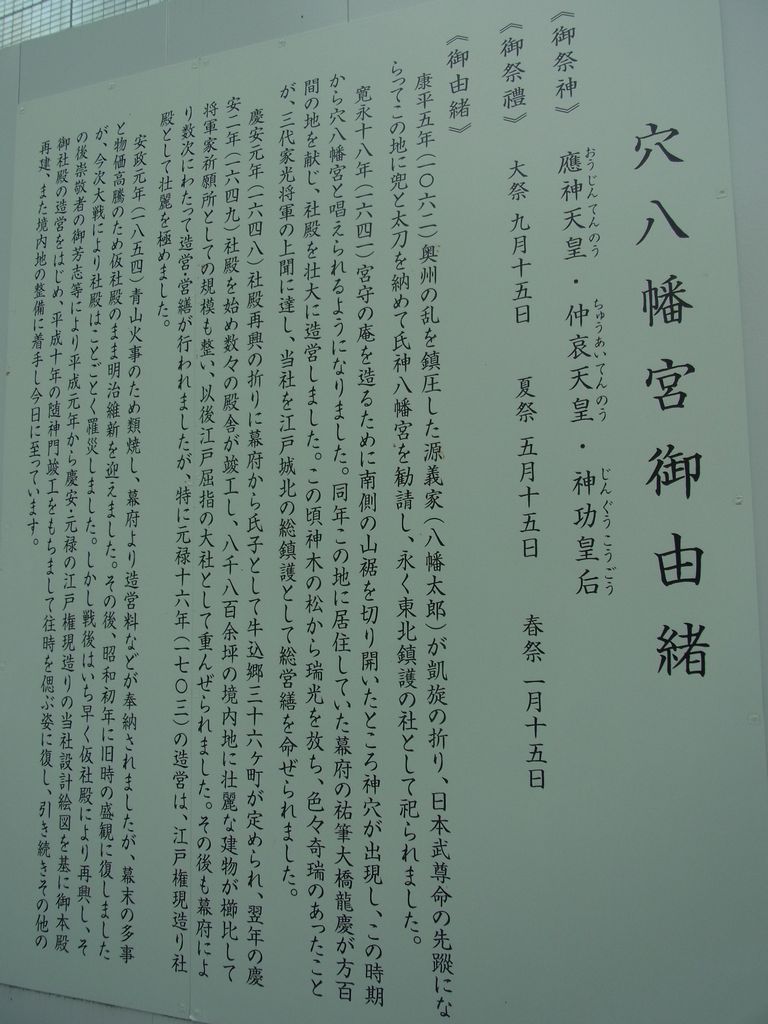 穴八幡宮御由緒
《御祭神》 應神天皇・仲哀天皇・神功皇后
おうじんてんのう ちゅうあいてんのう じんぐうこうごう
《御祭禮》 大祭 九月十五日 夏祭 五月十五日 春祭 一月十五日
《御由緒》
康平五年(一〇六二)奥州の乱を鎮圧した源義家(八幡太郎)が凱旋の折り、日本武尊命の先蹤にな
らってこの地に兜と太刀を納めて氏神八幡宮を勧請し、永く東北鎮護の社として祀られました。
寛永十八年(一六四一)宮守の庵を造るために南側の山裾を切り開いたところ神穴が出現し、この時期
から穴八幡宮と唱えられるようになりました。同年この地に居住していた幕府の祐筆大橋龍慶が方百
間の地を献じ、社殿を壮大に造営しました。この頃神木の松から瑞光を放ち、色々奇瑞のあったこと
が、三代家光将軍の上聞に達し、当社を江戸城北の総鎮護として総営繕を命ぜられました。
慶安元年(一六四八)社殿再興の折りに幕府から氏子として牛込郷三十六ヶ町が定められ、翌年の慶
安二年(一六四九)社殿を始め数々の殿舎が竣工し、八千八百余坪の境内地に壮麗な建物が櫛比して
将軍家祈願所としての規模も整い、以後江戸屈指の大社として重んぜられました。その後も幕府によ
り数次にわたって造営・営繕が行われましたが、特に元禄十六年(一七〇三)の造営は、江戸権現造り社
殿として壮麗を極めました。
安政元年(一八五四)青山火事のため類焼し、幕府より造営料などが奉納されましたが、幕末の多事
と物価高騰のため仮社殿のまま明治維新を迎えました。その後、昭和初年に旧時の盛観に復しました
が、今次大戦により社殿はことごとく罹災しました。しかし戦後はいち早く仮社殿により再興し、そ
の後崇敬者の御芳志等により平成元年から慶安・元禄の江戸権現造りの当社設計絵図を基に御本殿
御社殿の造営をはじめ、平成十年の随神門竣工をもちまして往時を偲ぶ姿に復し、引き続きその他の
再建、また境内地の整備に着手し今日に至っています。